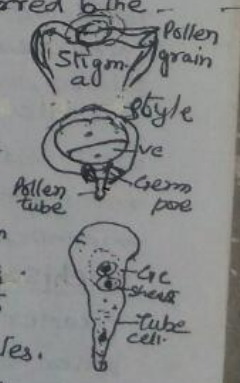 rred to the
Pollen
grain
Stigm
a
style
VC
Pollen
tube
Germ
pore
GC
sheath
Tube
cell.
les.